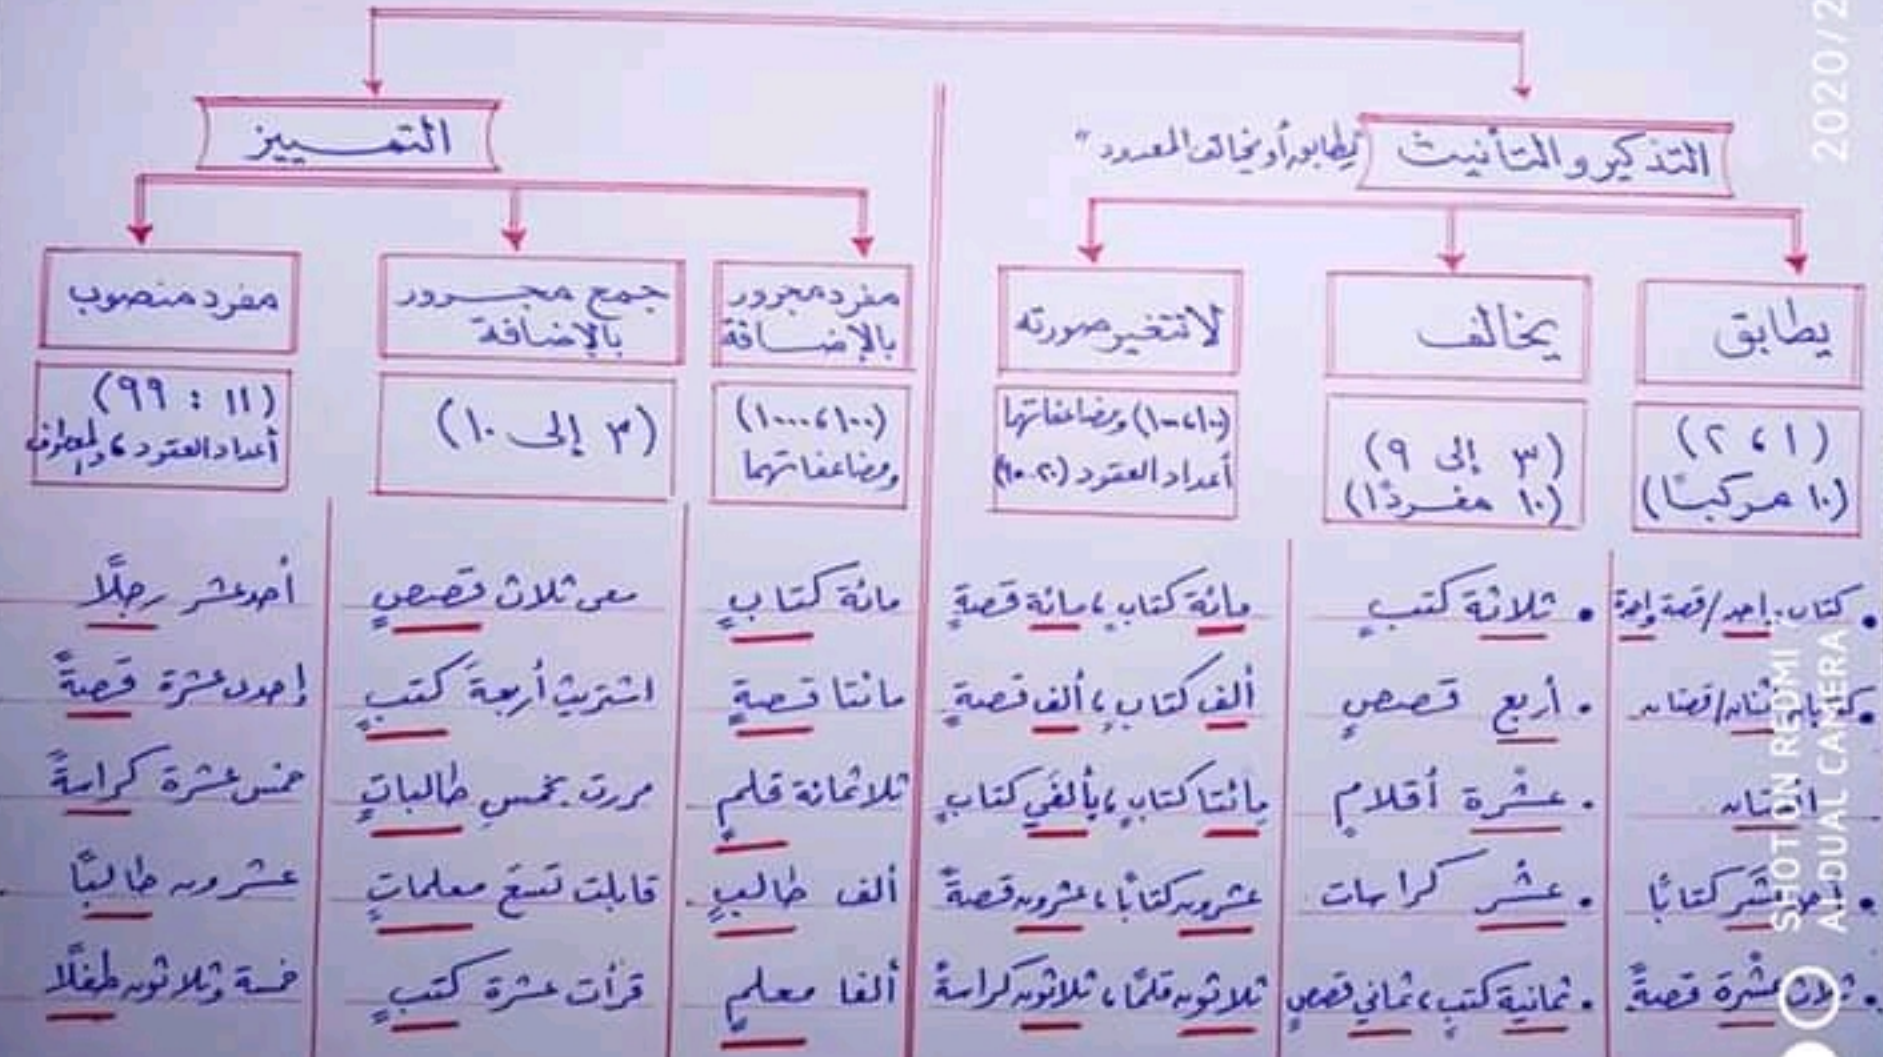 التذكير والتأنيث "يطابق أو يخالف المعدود"
يطابق
(١ ، ٢)
(١٠ مركبًا)
• كتاب واحد / قصة واحدة
كتابان اثنان / قصتان
اثنتان
• أحد عشر كتابًا
• ثلاث عشرة قصةً
يخالف
(٣ إلى ٩)
(١٠ مفردًا)
• ثلاثة كتبٍ
• أربع قصصٍ
• عشرة أقلامٍ
• عشر كراسات
• ثمانية كتبٍ ، ثماني قصصٍ
لا تتغير صورته
ومضاعفاتهما
أعداد العقود (٢٠-٩٠)
مائة كتابٍ ، مائة قصةٍ
ألف كتابٍ ، ألف قصةٍ
مائتا كتابٍ ، بألفَي كتابٍ
عشرون كتابًا ، عشرون قصةً
ثلاثون قلمًا ، ثلاثون كراسةً
التمييز
مفرد مجرور
بالإضافة
(١٠٠ ، ١٠٠٠)
ومضاعفاتهما
مائة كتابٍ
مائتا قصةٍ
ثلاثمائة قلمٍ
ألف طالبٍ
ألفا معلمٍ
جمع مجرور
بالإضافة
(٣ إلى ١٠)
معى ثلاث قصصٍ
اشتريت أربعةَ كتبٍ
مررت بخمسِ طالباتٍ
قابلت تسعَ معلماتٍ
قرأت عشرة كتبٍ
مفرد منصوب
(١١ : ٩٩)
أعداد العقود ، والمعطوف
أحد عشر رجلًا
إحدى عشرة قصةً
خمس عشرة كراسةً
عشرون طالبًا
خمسة وثلاثون طفلًا
SHOT ON REDMI 7
AI DUAL CAMERA
2020/2